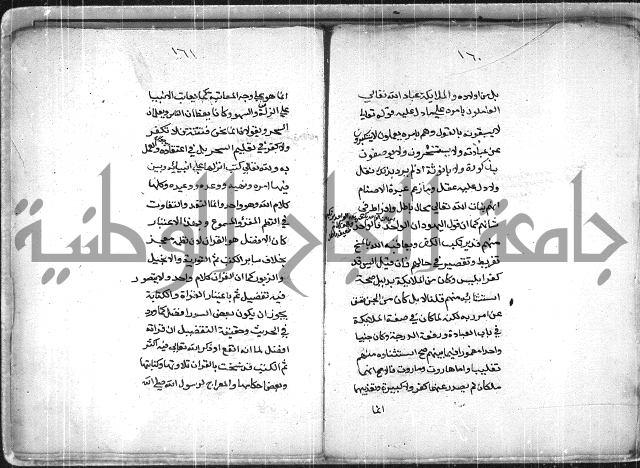 ١٦٠
بل من اولاده والملايكة عباد الله تعالى
العاملون بامره على ما دل عليه قوله تعالى
لا يسبقونه بالقول وهم بامره يعملون لا يستكبرون
عن عبادته ولا يستحسرون ولا يوصفون
بذكورة ولا بانوثة اذ لم يرد بذلك نقل
ولا دل عليه عقل وما زعم عبدة الاصنام
انهم بنات الله تعالى محال باطل وافراط في
شانهم كما ان قول اليهود ان الواحد فالواحد
منهم قد يرتكب الكفر ويعاقبه الله بالمسخ
تفريط وتقصير في حالهم فان قيل اليس قد
كفر ابليس وكان من الملايكة بدليل صحة
استثنائه منهم قلنا لا بل كان من الجن ففسق
عن امر ربه لكنه لما كان في صفة الملايكة
في باب العبادة ورفعة الدرجة وكان جنيا
واحدا مغمورا فيما بينهم صح استثناؤه منهم
تغليبا واما هاروت وماروت فالاصح انهما
ملكان لم يصدر عنهما كفر ولا كبيرة وتعذيبهما
انما
١٦١
انما هو على وجه المعاتبة كما يعاتب الانبيا
على الزلة والسهو وكانا يعظان الناس ويعلمان
السحر ويقولان انما نحن فتنة فلا تكفر
ولا كفر في تعليم السحر بل في اعتقاده والعمل
به ولله تعالى كتب انزلها على انبيائه وبين
فيها امره ونهيه ووعده ووعيده وكلها
كلام الله وهو واحد وانما التعدد والتفاوت
في النظم المقرو المسموع وبهذا الاعتبار
كان الافضل هو القران
بخلاف ساير الكتب ثم التورية والانجيل
والزبور كما ان القران كلام واحد ولا يتصور
فيه تفضيل ثم باعتبار القراة والكتابة
يجوز ان يكون بعض السور افضل كما ورد
في الحديث وحقيقة التفضيل ان قراته
افضل لما انه انفع او ذكر الله تعالى فيه اكثر
ثم الكتب قد نسخت بالقران تلاوتها وكتابتها
وبعض احكامها والمعراج لرسول الله صلى الله
جامعة النجاح الوطنية